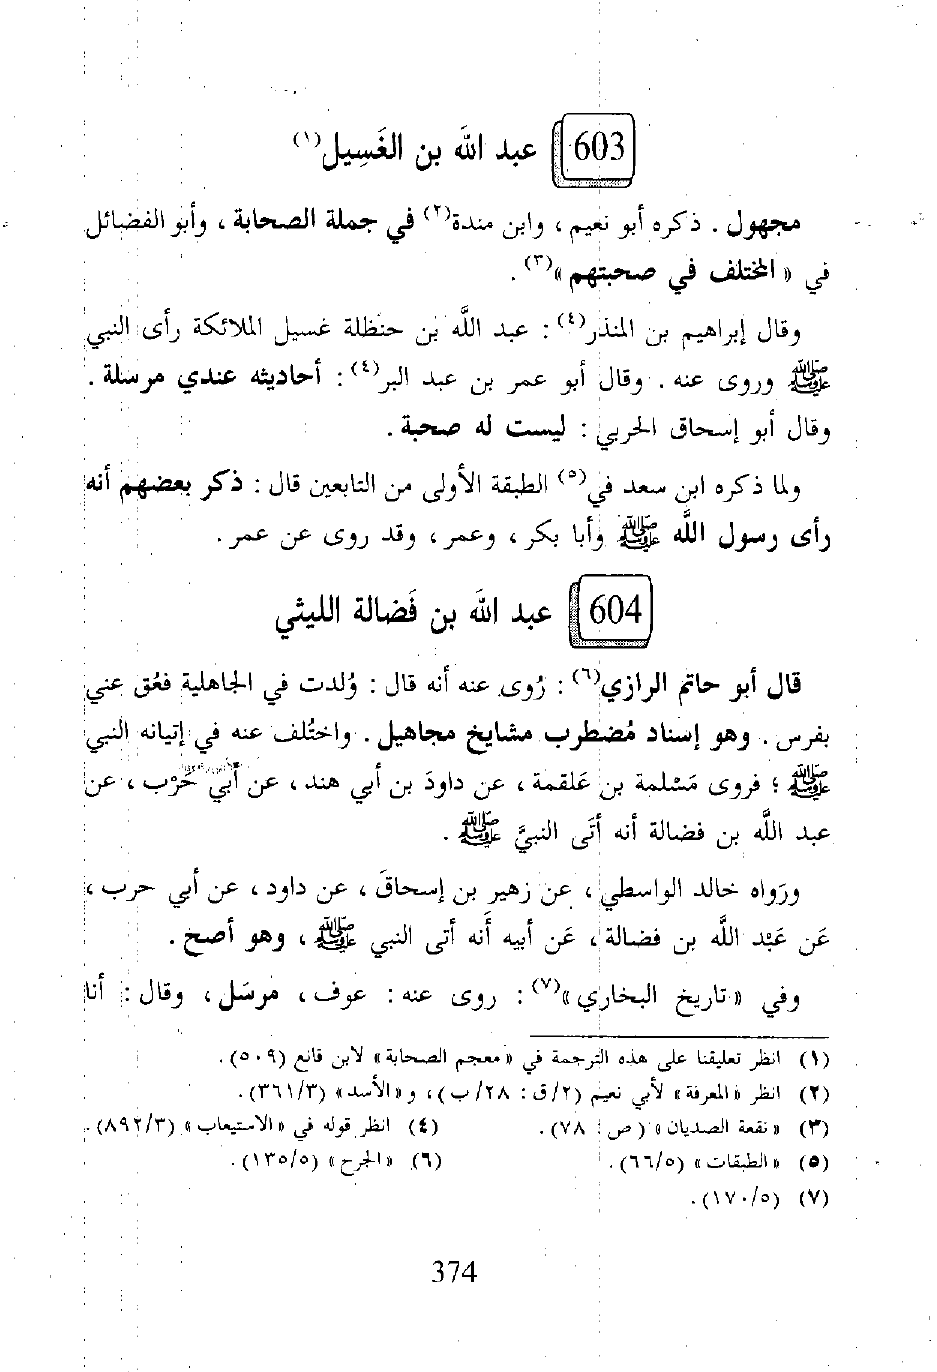 603 عبد الله بن الغَسِيل(١)
مجهول . ذكره أبو نعيم ، وابن مندة(٢) في جملة الصحابة ، وأبو الفضائل
في « المختلف في صحبتهم »(٣) .
وقال إبراهيم بن المنذر(٤) : عبد اللَّه بن حنظلة غسيل الملائكة رأى النبي
ﷺ وروى عنه . وقال أبو عمر بن عبد البر(٤) : أحاديثه عندي مرسلة .
وقال أبو إسحاق الحربي : ليست له صحبة .
ولما ذكره ابن سعد في(٥) الطبقة الأولى من التابعين قال : ذكر بعضهم أنه
رأى رسول اللَّه ﷺ وأبا بكر ، وعمر ، وقد روى عن عمر .
604 عبد الله بن فَضالة الليثي
قال أبو حاتم الرازي(٦) : رُوى عنه أنه قال : وُلدت في الجاهلية فعُق عني
بفرس . وهو إسناد مُضطرب مشايخ مجاهيل . واختُلف عنه في إتيانه النبي
ﷺ ؛ فروى مَسْلمة بن عَلقمة ، عن داودَ بن أبي هند ، عن أبي حَرْب ، عن
عبد اللَّه بن فضالة أنه أتَى النبيَّ ﷺ .
ورَواه خالد الواسطي ، عن زهير بن إسحاقَ ، عن داود ، عن أبي حرب ،
عَن عَبْد اللَّه بن فضالة ، عَن أبيه أَنه أتى النبي ﷺ ، وهو أصح .
وفي « تاريخ البخاري »(٧) : روى عنه : عوف ، مرسَل ، وقال : أنا
(١) انظر تعليقنا على هذه الترجمة في « معجم الصحابة » لابن قانع (٥٠٩) .
(٢) انظر « المعرفة » لأبي نعيم (٢/ ق : ٢٨/ ب) ، و « الأسد » (٣٦١/٣) .
(٣) « نقعة الصديان » ( ص : ٧٨) . (٤) انظر قوله في « الاستيعاب » (٨٩٢/٣) .
(٥) « الطبقات » (٦٦/٥) . (٦) « الجرح » (١٣٥/٥) .
(٧) (١٧٠/٥) .
374